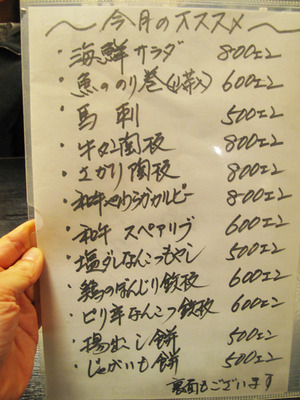 〜今月のオススメ〜
・海鮮サラダ 800エン
・魚ののり巻(山菜入) 600エン
・馬刺 500エン
・牛タン陶板 800エン
・エガリ陶板 800エン
・和牛やわらかカルビー 800エン
・和牛 スペアリブ 600エン
・塩ダレなんこつもやし 500エン
・鶏のぼんじり鉄板 600エン
・ピリ辛なんこつ鉄板 600エン
・揚出し餅 500エン
・じゃがいも餅 500エン
裏面もございます